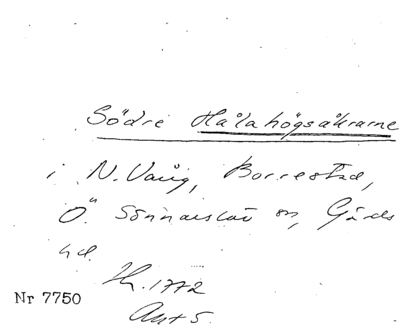 Södre Hålahögsåkrarne
i N. Vång, Borrestad,
Ö. Sönnarslöv sn, Gärds
hd.
Ht. 1772
Akt 5.
Nr 7750